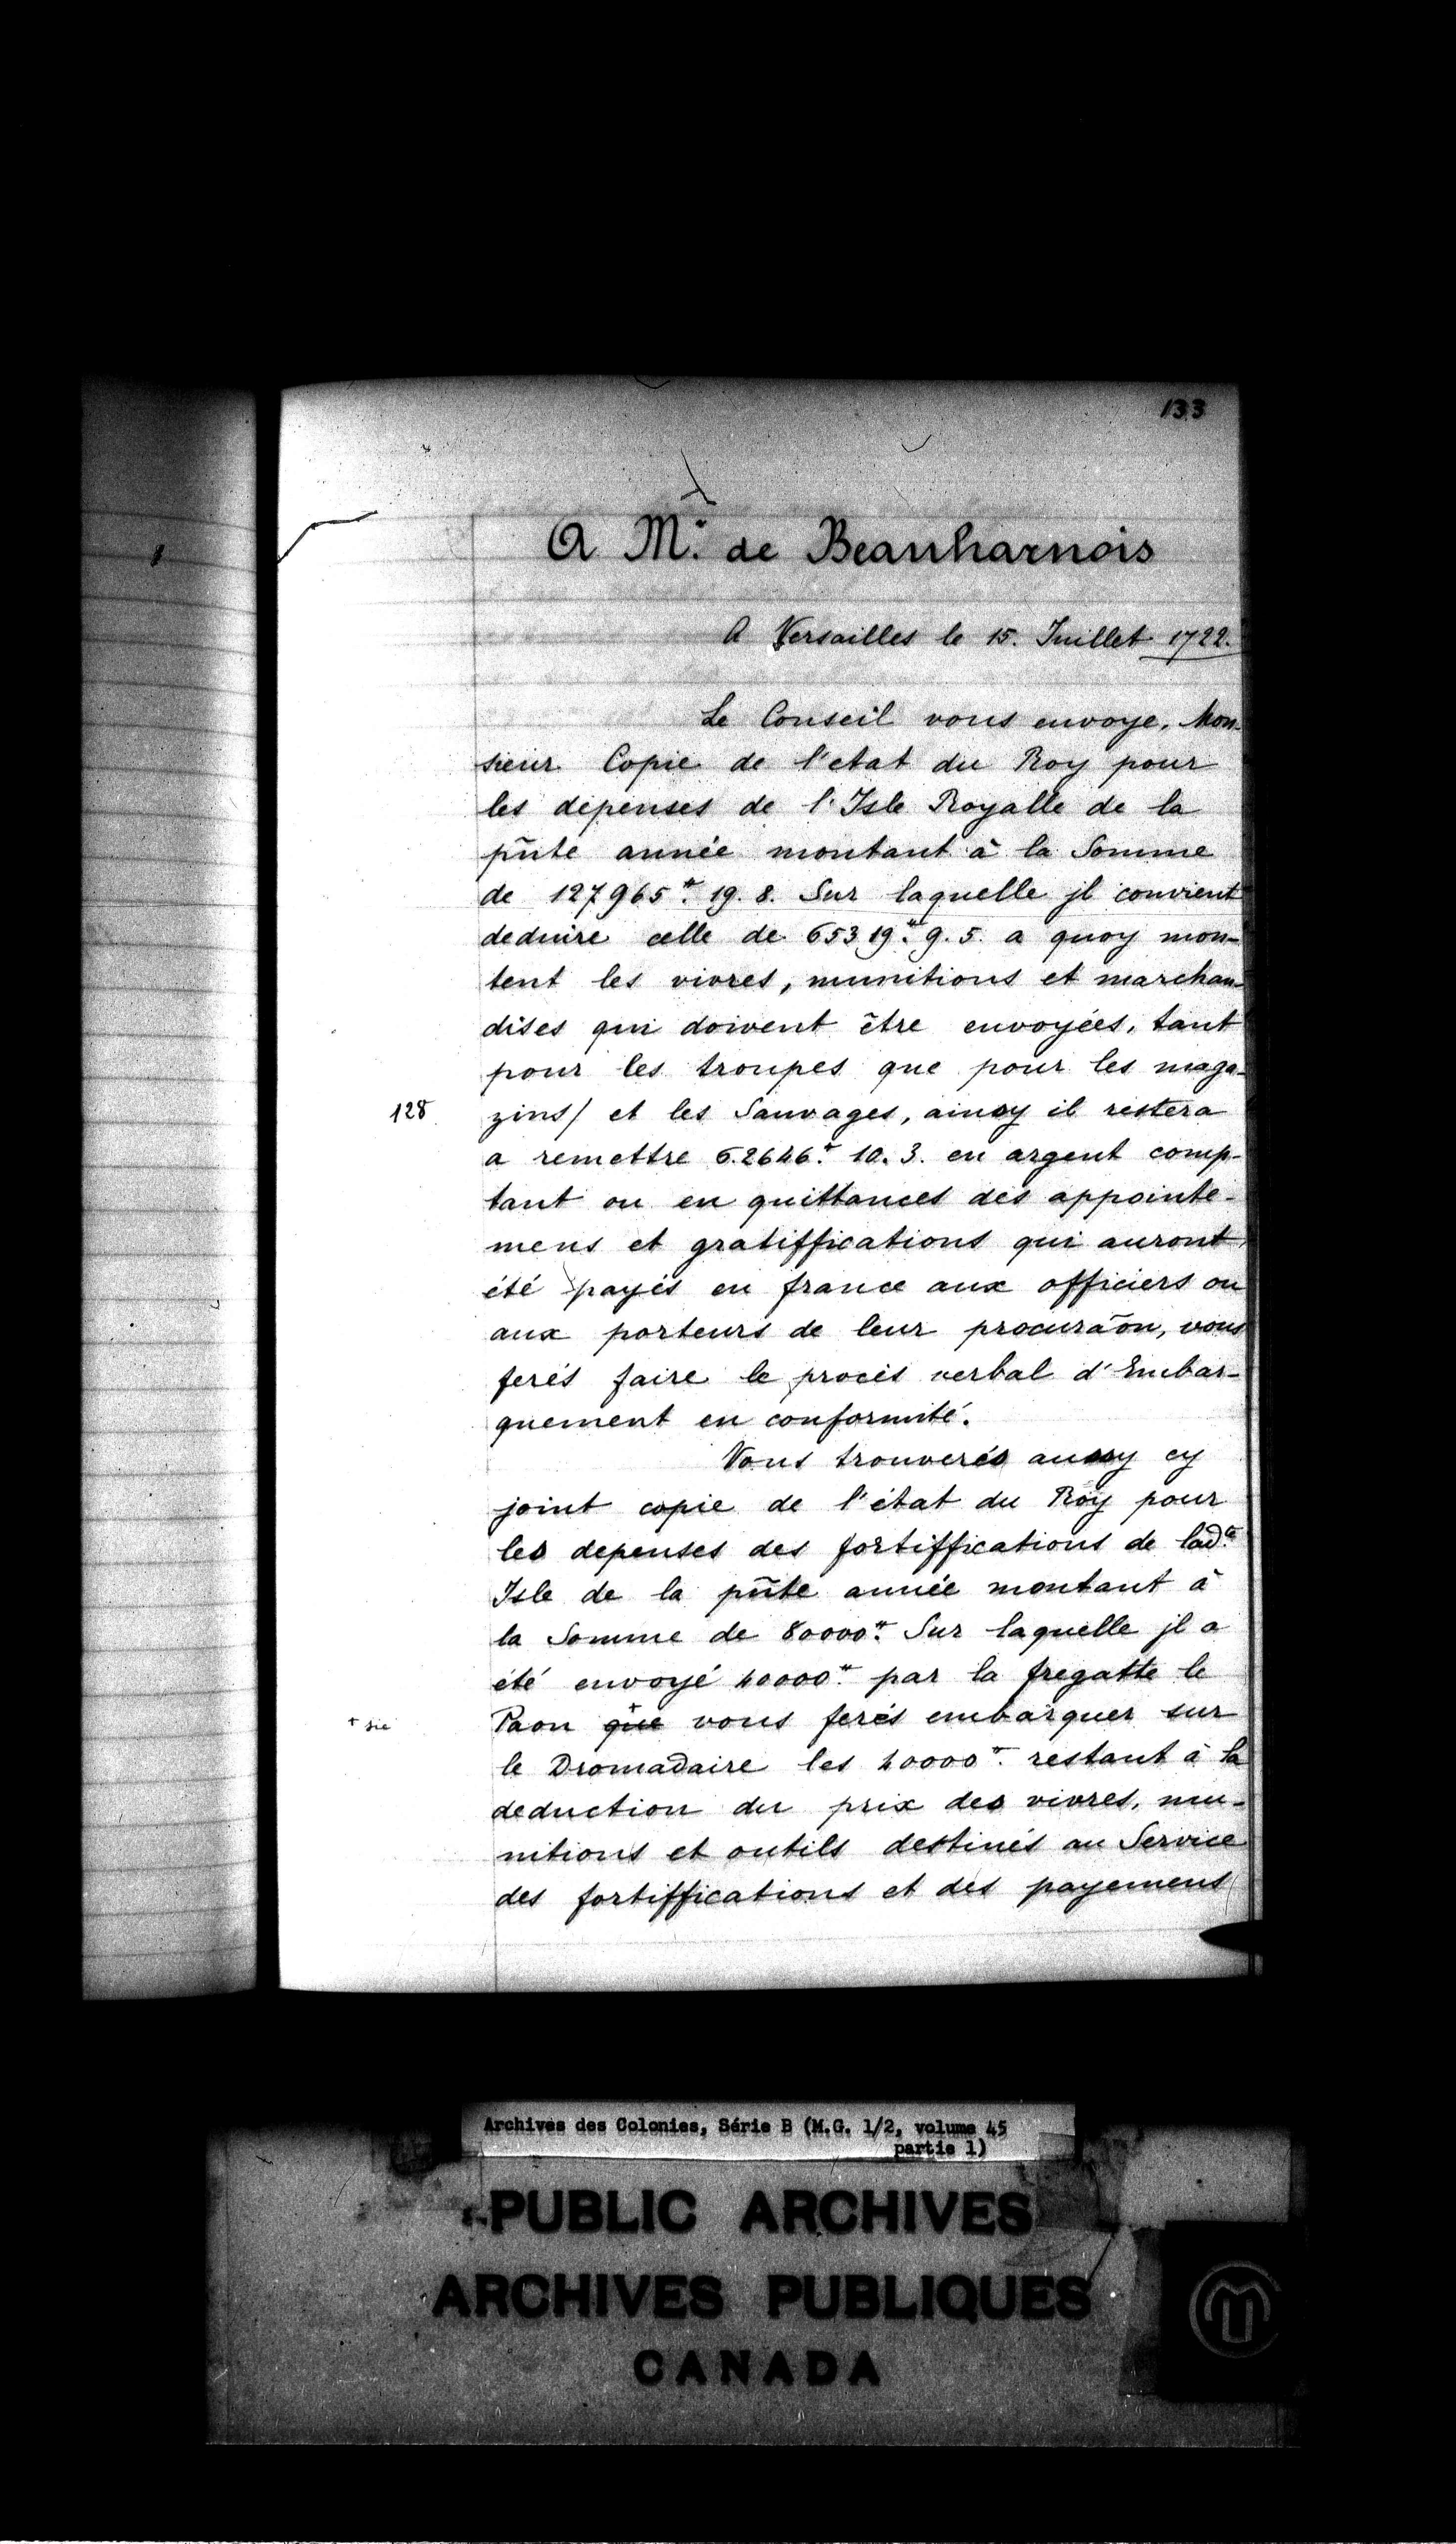 133
A Mr. de Beauharnois
A Versailles le 15. Juillet 1722.
Le Conseil vous envoye, Mon-
sieur Copie de l'etat du Roy pour
les dépenses de l'Isle Royalle de la
pn̄te année montant à la Somme
de 127965.# 19. 8. Sur laquelle jl convient
deduire celle de 65319.# 9. 5. a quoy mon-
tent les vivres, munitions et marchan-
dises qui doivent être envoyées, tant
pour les troupes que pour les maga-
128 zins/ et les Sauvages, ainsy il restera
a remettre 62646.# 10. 3. en argent comp-
tant ou en quittances des appointe-
mens et gratiffications qui auront
été payés en france aux officiers ou
aux porteurs de leur procurāon, vous
ferés faire le procès verbal d'Embar-
quement en conformité.
Vous trouverés aussy cy
joint copie de l'état du Roy pour
les depenses des fortiffications de lad.te
Isle de la pn̄te année montant à
la Somme de 80000.# Sur laquelle jl a
été envoyé 40000.# par la fregatte le
+ sic Paon que + vous ferés embarquer sur
le Dromadaire les 40000.# restant à la
deduction du prix des vivres, mu-
nitions et outils destinés au Service
des fortiffications et des payemens
Archives des Colonies, Série B (M.G. 1/2, volume 45
partie 1)
PUBLIC ARCHIVES
ARCHIVES PUBLIQUES
CANADA